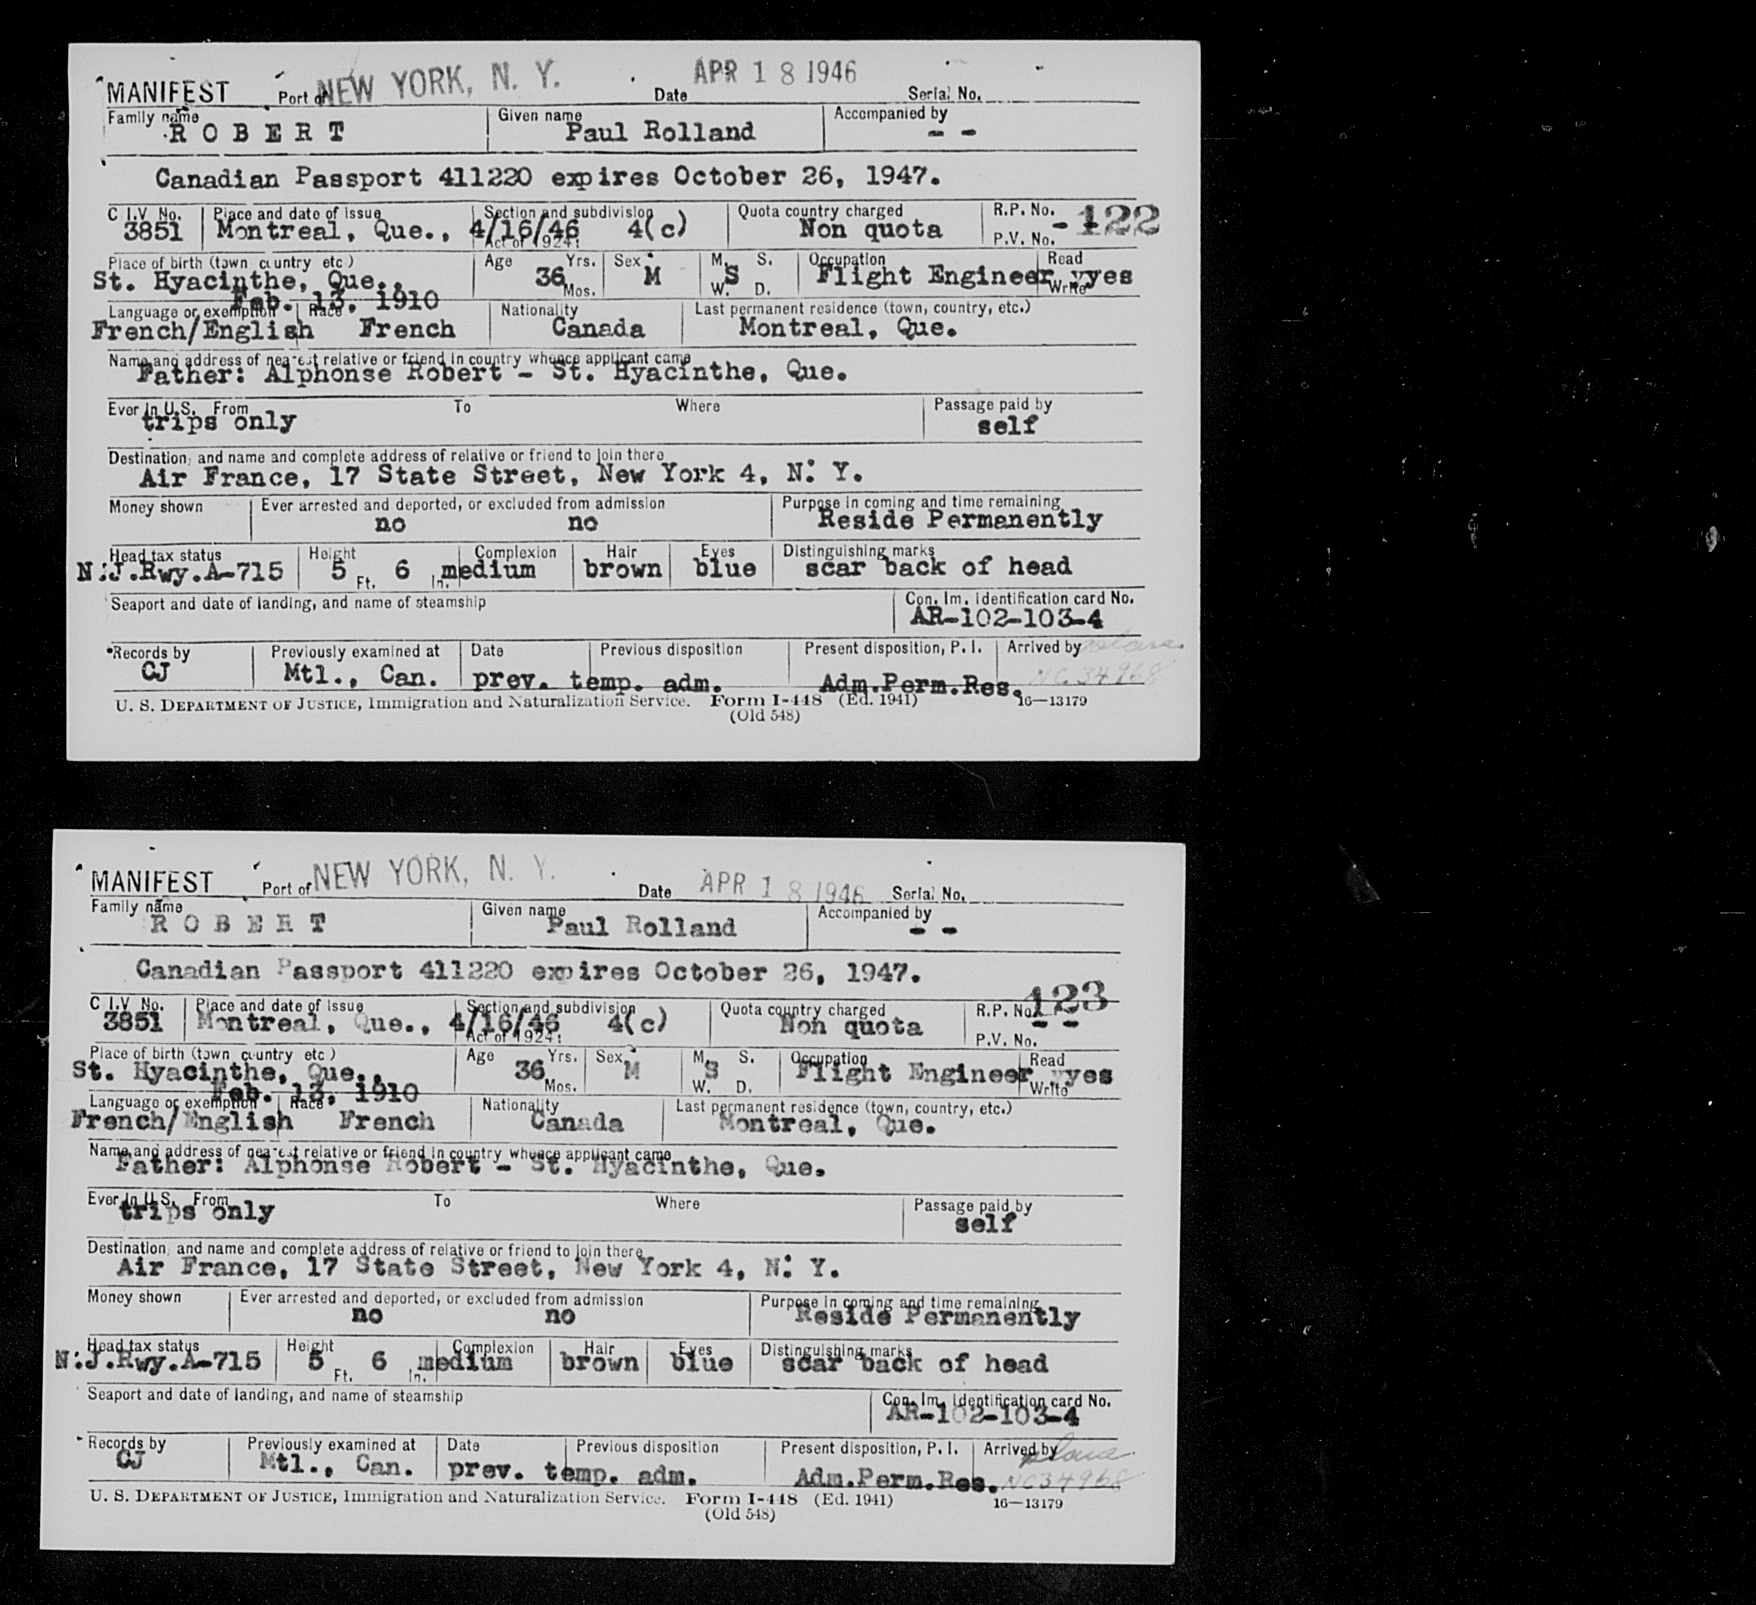 MANIFEST Port of NEW YORK, N. Y. Date APR 18 1946 Serial No.
Family name Given name Accompanied by
ROBERT Paul Rolland - -
Canadian Passport 411220 expires October 26, 1947.
C I.V No. Place and date of issue Section and subdivision Quota country charged R.P. No. 122
3851 Montreal, Que., 4/16/46 4(c) Non quota - -
Act of 1924: P.V. No.
Place of birth (town country etc) Age Yrs. Sex M. S. Occupation Read
St. Hyacinthe, Que., 36 M S Flight Engineer yyes
Mos. W. D. Write
Feb. 13, 1910
Language or exemption Race Nationality Last permanent residence (town, country, etc.)
French/English French Canada Montreal, Que.
Name and address of nearest relative or friend in country whence applicant came
Father: Alphonse Robert - St. Hyacinthe, Que.
Ever in U.S. From To Where Passage paid by
trips only self
Destination, and name and complete address of relative or friend to join there
Air France, 17 State Street, New York 4, N. Y.
Money shown Ever arrested and deported, or excluded from admission Purpose in coming and time remaining
no no Reside Permanently
Head tax status Height Complexion Hair Eyes Distinguishing marks
N.J.Rwy.A-715 5 Ft. 6 In. medium brown blue scar back of head
Seaport and date of landing, and name of steamship Con. Im. Identification card No.
AR-102-103-4
Records by Previously examined at Date Previous disposition Present disposition, P. I. Arrived by plane
CJ Mtl., Can. prev. temp. adm. Adm.Perm.Res. NC 34968
U. S. DEPARTMENT OF JUSTICE, Immigration and Naturalization Service. Form I-448 (Ed. 1941) 16—13179
(Old 548)
MANIFEST Port of NEW YORK, N. Y. Date APR 18 1946 Serial No.
Family name Given name Accompanied by
ROBERT Paul Rolland - -
Canadian Passport 411220 expires October 26, 1947.
C I.V No. Place and date of issue Section and subdivision Quota country charged R.P. No. 123
3851 Montreal, Que., 4/16/46 4(c) Non quota - -
Act of 1924: P.V. No.
Place of birth (town country etc) Age Yrs. Sex M. S. Occupation Read
St. Hyacinthe, Que., 36 M S Flight Engineer yyes
Mos. W. D. Write
Feb. 13, 1910
Language or exemption Race Nationality Last permanent residence (town, country, etc.)
French/English French Canada Montreal, Que.
Name and address of nearest relative or friend in country whence applicant came
Father: Alphonse Robert - St. Hyacinthe, Que.
Ever in U.S. From To Where Passage paid by
trips only self
Destination, and name and complete address of relative or friend to join there
Air France, 17 State Street, New York 4, N. Y.
Money shown Ever arrested and deported, or excluded from admission Purpose in coming and time remaining
no no Reside Permanently
Head tax status Height Complexion Hair Eyes Distinguishing marks
N.J.Rwy.A-715 5 Ft. 6 In. medium brown blue scar back of head
Seaport and date of landing, and name of steamship Con. Im. Identification card No.
AR-102-103-4
Records by Previously examined at Date Previous disposition Present disposition, P. I. Arrived by plane
CJ Mtl., Can. prev. temp. adm. Adm.Perm.Res. NC34968
U. S. DEPARTMENT OF JUSTICE, Immigration and Naturalization Service. Form I-448 (Ed. 1941) 16—13179
(Old 548)